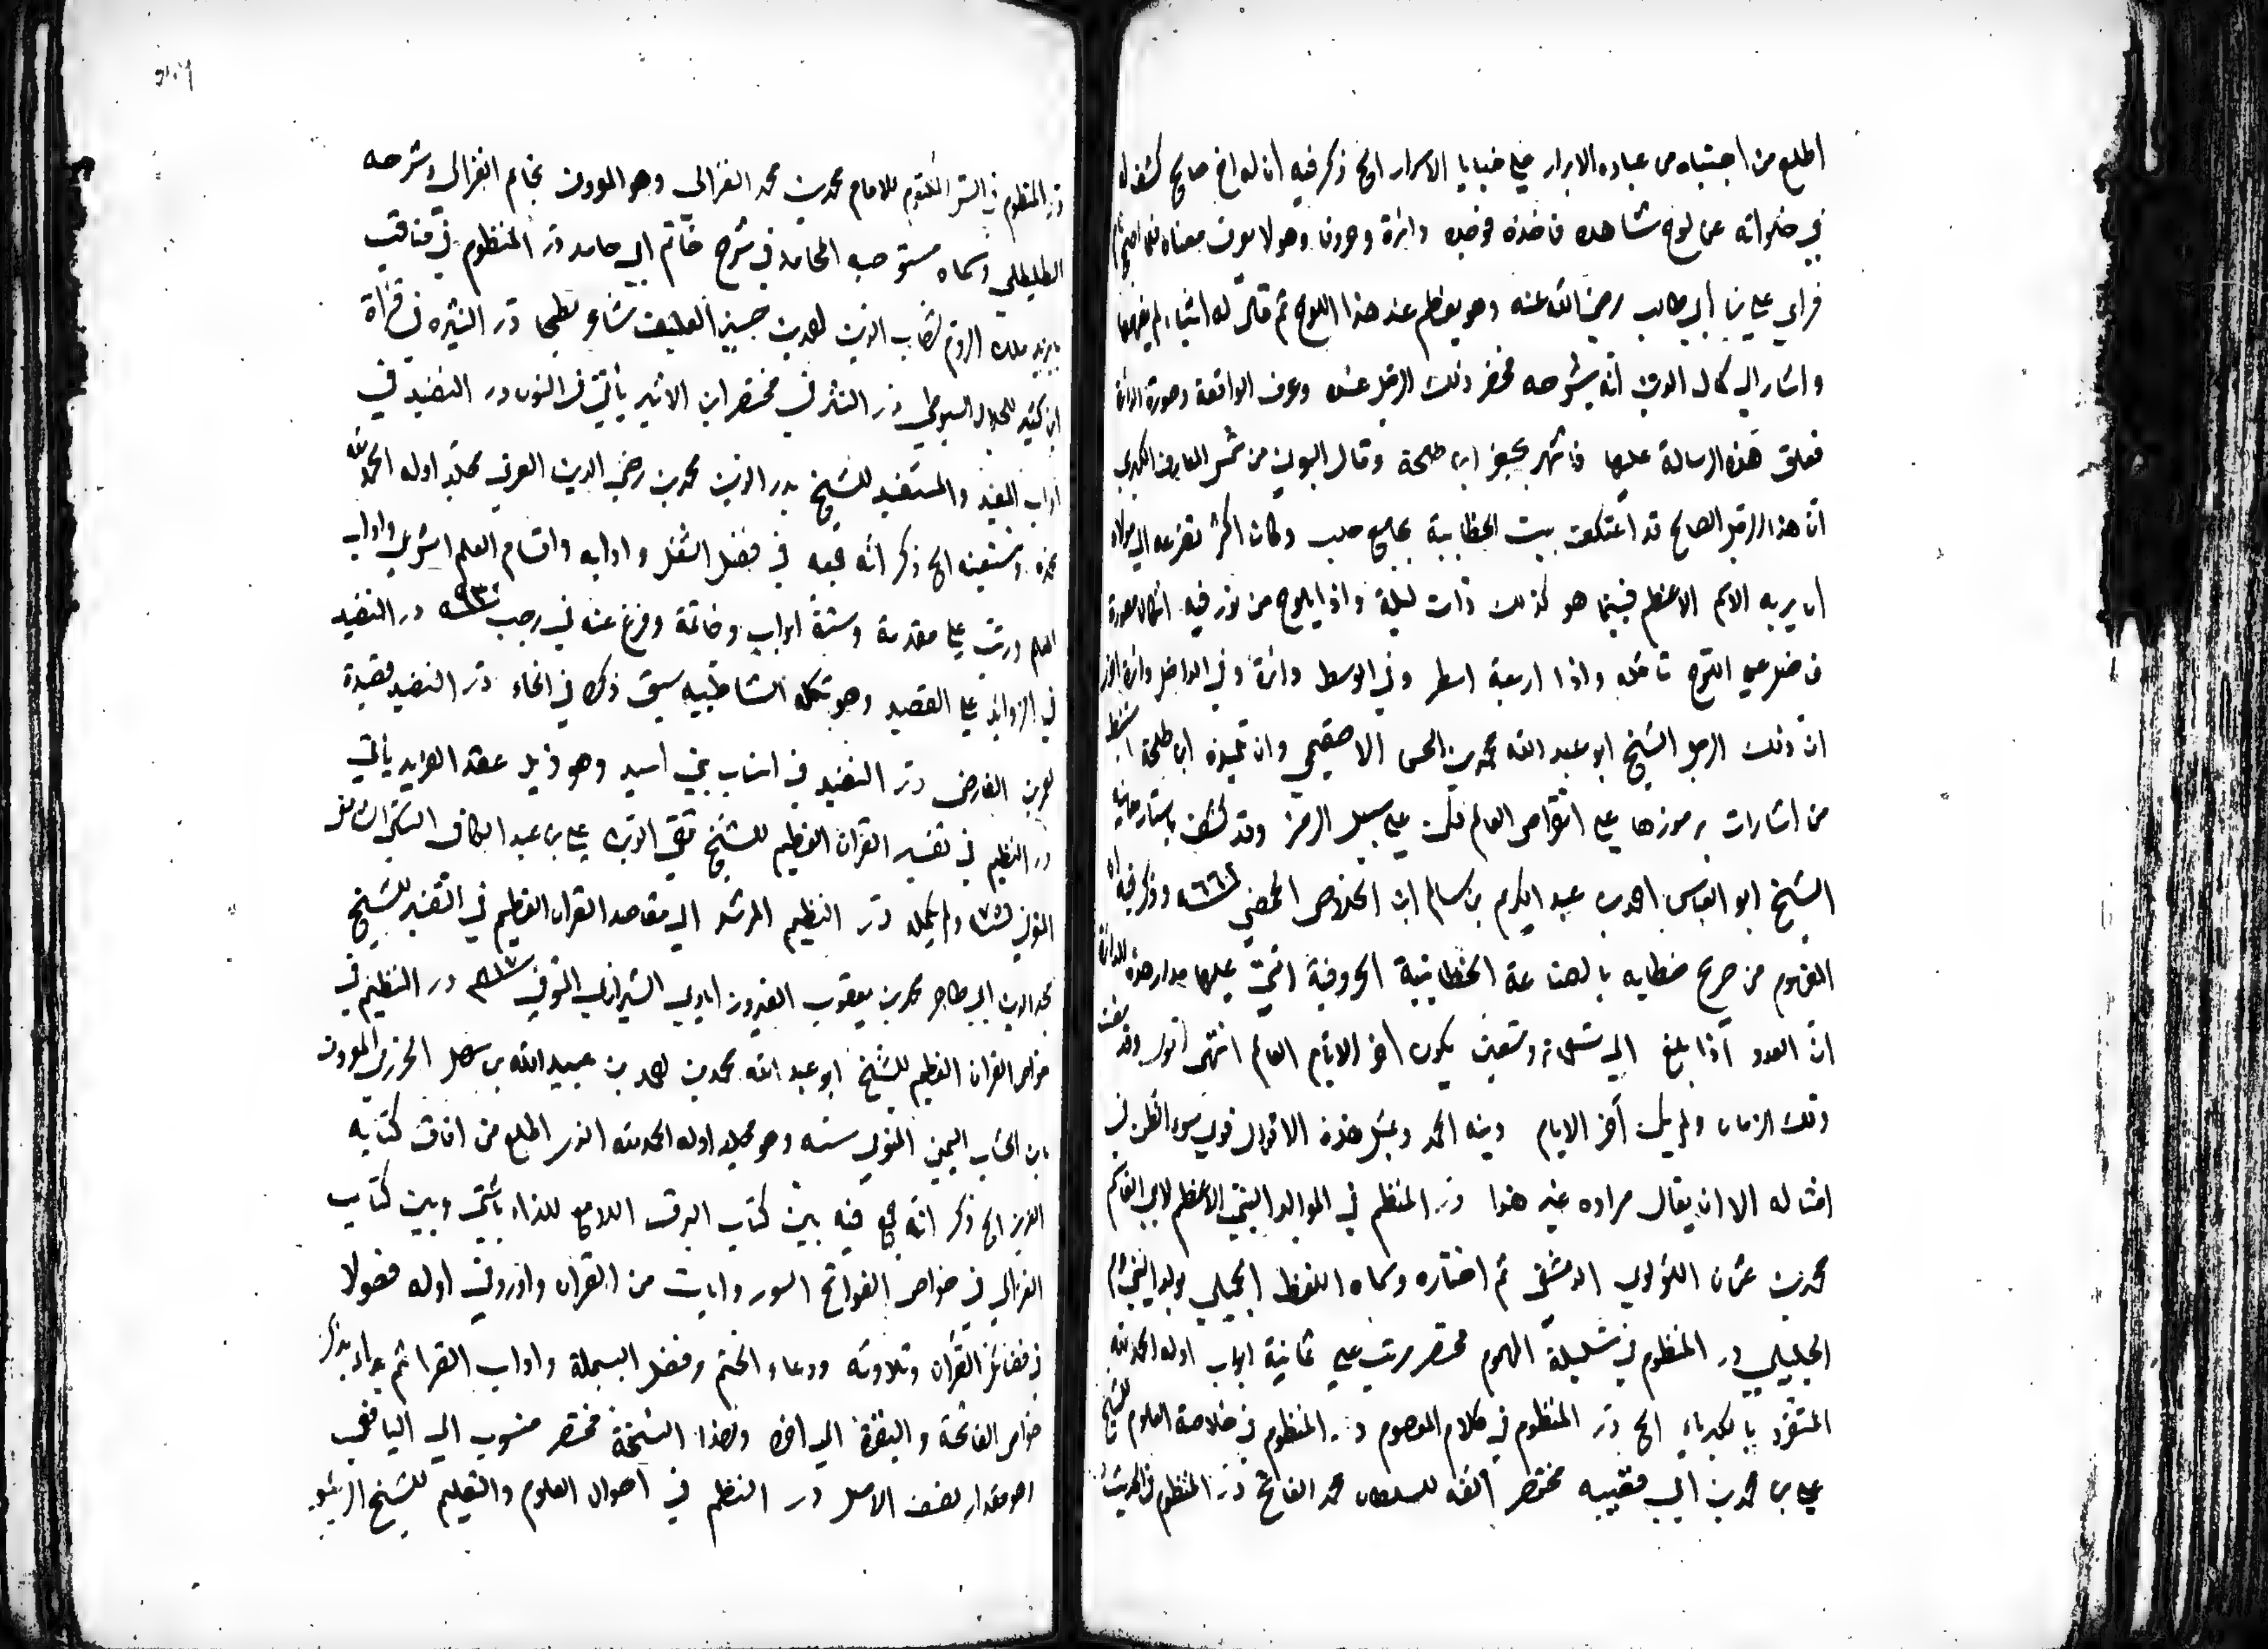 اطلع من اجتباه من عباده الابرار على خبايا الاسرار الخ ذكر فيه ان له اخ صالح كشف له
في خلواته عن لوح شاهده فاخذه فوجده دائرة وحروف وهو لا يعرف معناه فلما اصبح نام
فراى علي بن ابي طالب رضي الله عنه وهو يعظم عند هذا اللوح ثم قال له اشياء لم يفهمها
واشار الى كمال الدين انه يشرحه فحضر ذلك الرجل عنده وعرف الواقعة وصورة الدائرة
فعلق هذه الرسالة عليها فاشتهر بجفر ابن طلحة وقال البوني في شمس المعارف الكبرى
ان هذا الرجل الصالح قد اعتكف ببيت الخطابة بجامع حلب وكان اكثر تضرعه الى مولاه
ان يريه الاسم الاعظم فبينما هو كذلك ذات ليلة واذا بلوح من نور فيه اشكال مصورة
فاقبل على اللوح تأمله واذا اربعة اسطر وفي الوسط دائرة وفي الداخل دائرة اخرى
ان ذلك الرجل الشيخ ابو عبد الله محمد بن الحسن الاخميمي وان تلميذه ابن طلحة استنبط
من اشارات رموزها على انقراض العالم لكن على سبيل الرمز وقد كشف باستار معانيه
الشيخ ابو العباس احمد بن عبد الكريم بن سالم ابن الخلاص الحمصي ٦٦٠ وذكر فيه ان
المفهوم من صريح خطابه بالصناعة الخطابية الحروفية التي عليها مدار هذه الدائرة
ان العدد اذا بلغ الى تسعمائة وتسعين يكون اخر الايام العالم انتهى اقول وقد مضت
وتلك الزمان ولم يكن آخر الايام ولله الحمد وبمثل هذه الاقوال قوي سوء الظن في
امثاله الا ان يقال مراده غير هذا در المنظم في المولد النبي الاعظم لابي القاسم
محمد بن عثمان اللؤلؤي الدمشقي ثم اختاره وسماه اللفظ الجميل بمولد النبي
الجليل در المنظوم في تسلية المهموم مختصر مرتب على ثمانية ابواب اوله الحمد لله
المتفرد بالكبرياء الخ در المنظوم في كلام المعصوم در المنظوم في خلاصة العلوم للشيخ
علي بن محمد بن ابي قصيبه مختصر الفه للسلطان محمد الفاتح در المنظوم في الحديث
در المنظوم في السر المكتوم للامام محمد بن محمد الغزالي وهو المعروف بخاتم الغزالي وشرحه
الطليطلي وسماه مستوجبة المحامد في شرح خاتم ابي حامد در المنظوم في مناقب
بايزيد ملك الروم لشهاب الدين احمد بن حسين العليف شاعر بطحا در النثير في قراة
ابن كثير للجلال السيوطي در النثر في مختصر ابن الاثير يأتي في النون در النضيد في
اداب المفيد والمستفيد للشيخ بدر الدين محمد بن رضي الدين الغزي مجلد اوله الحمد لله
نحمده ونستعينه الخ ذكر انه جمعه في فضل الشغل وادابه واقسام العلم الشرعي واداب
العلم ورتب على مقدمة وستة ابواب وخاتمة وفرغ عنه في رجب ٩٣٢ در النضيد
في الزوائد على القصيد وهو تكملة الشاطبية سبق ذكره في الحاء در النضيد قصيدة
لعمر بن الفارض در النضيد في انساب بني اسيد وهو ذيل عقد الفريد يأتي
در النظيم في تفسير القران العظيم للشيخ تقي الدين علي بن عبد الكافي السبكي
المتوفى ٧٥٦ ولم يكمله در النظيم المرشد الى مقاصد القران العظيم في التفسير للشيخ
مجد الدين ابي طاهر محمد بن يعقوب الفيروز ابادي الشيرازي المتوفى ٨١٧ در النظيم في
خواص القران العظيم للشيخ ابو عبد الله محمد بن احمد بن عبيد الله بن سهل الخزرجي المعروف
بابن الخشاب اليمني المتوفى سنه وهو مجلد اوله الحمد لله الذي اطلع من افاق كتابه
العزيز الخ ذكر انه جمع فيه بين كتاب البرق اللامع للغساني وبين كتاب
الغزالي في خواص الفواتح السور وايات من القران واورد في اوله فصولا
في فضائل القرآن وتلاوته ودعاء الختم وفضل البسملة واداب القرا ثم بداء بذكر
خواص الفاتحة والبقرة الى اخره ولهذا النسخة مختصر منسوب الى اليافعي
هو مقدار نصف الاصل در النظم في احوال العلوم والتعليم للشيخ